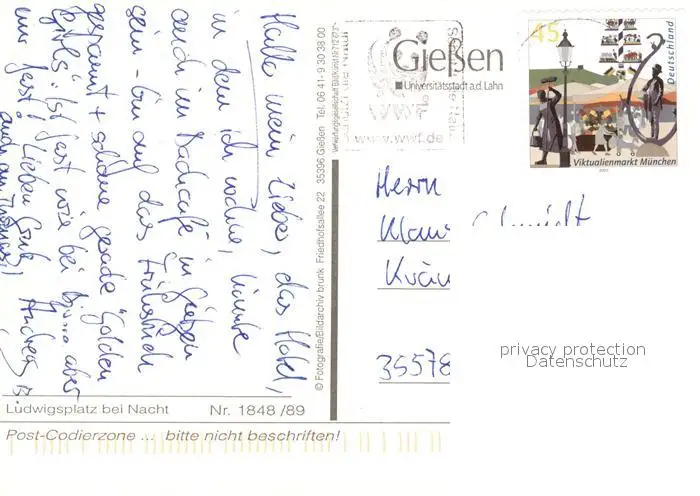 Hallo mein Lieber, das Hotel,
in dem ich wohne, könnte
auch im Badcafé in Gießen
sein - bin auf das Frühstück
gespannt + schaue gerade "Golden
Girls": ist fast wie bei aber
nur fast! Lieben Gruß Andreas B.
auch an Thomas!
© Fotografie/Bildarchiv brunk Friedhofsallee 22 35396 Gießen Tel. 06 41-9 30 38 00
Ludwigsplatz bei Nacht Nr. 1848 /89
Post-Codierzone ... bitte nicht beschriften!
WWF
www.wwf.de
Gießen
Universitätsstadt a.d. Lahn
45
Deutschland
Viktualienmarkt München
2003
Herrn
Klaus Schmidt
35578
privacy protection
Datenschutz